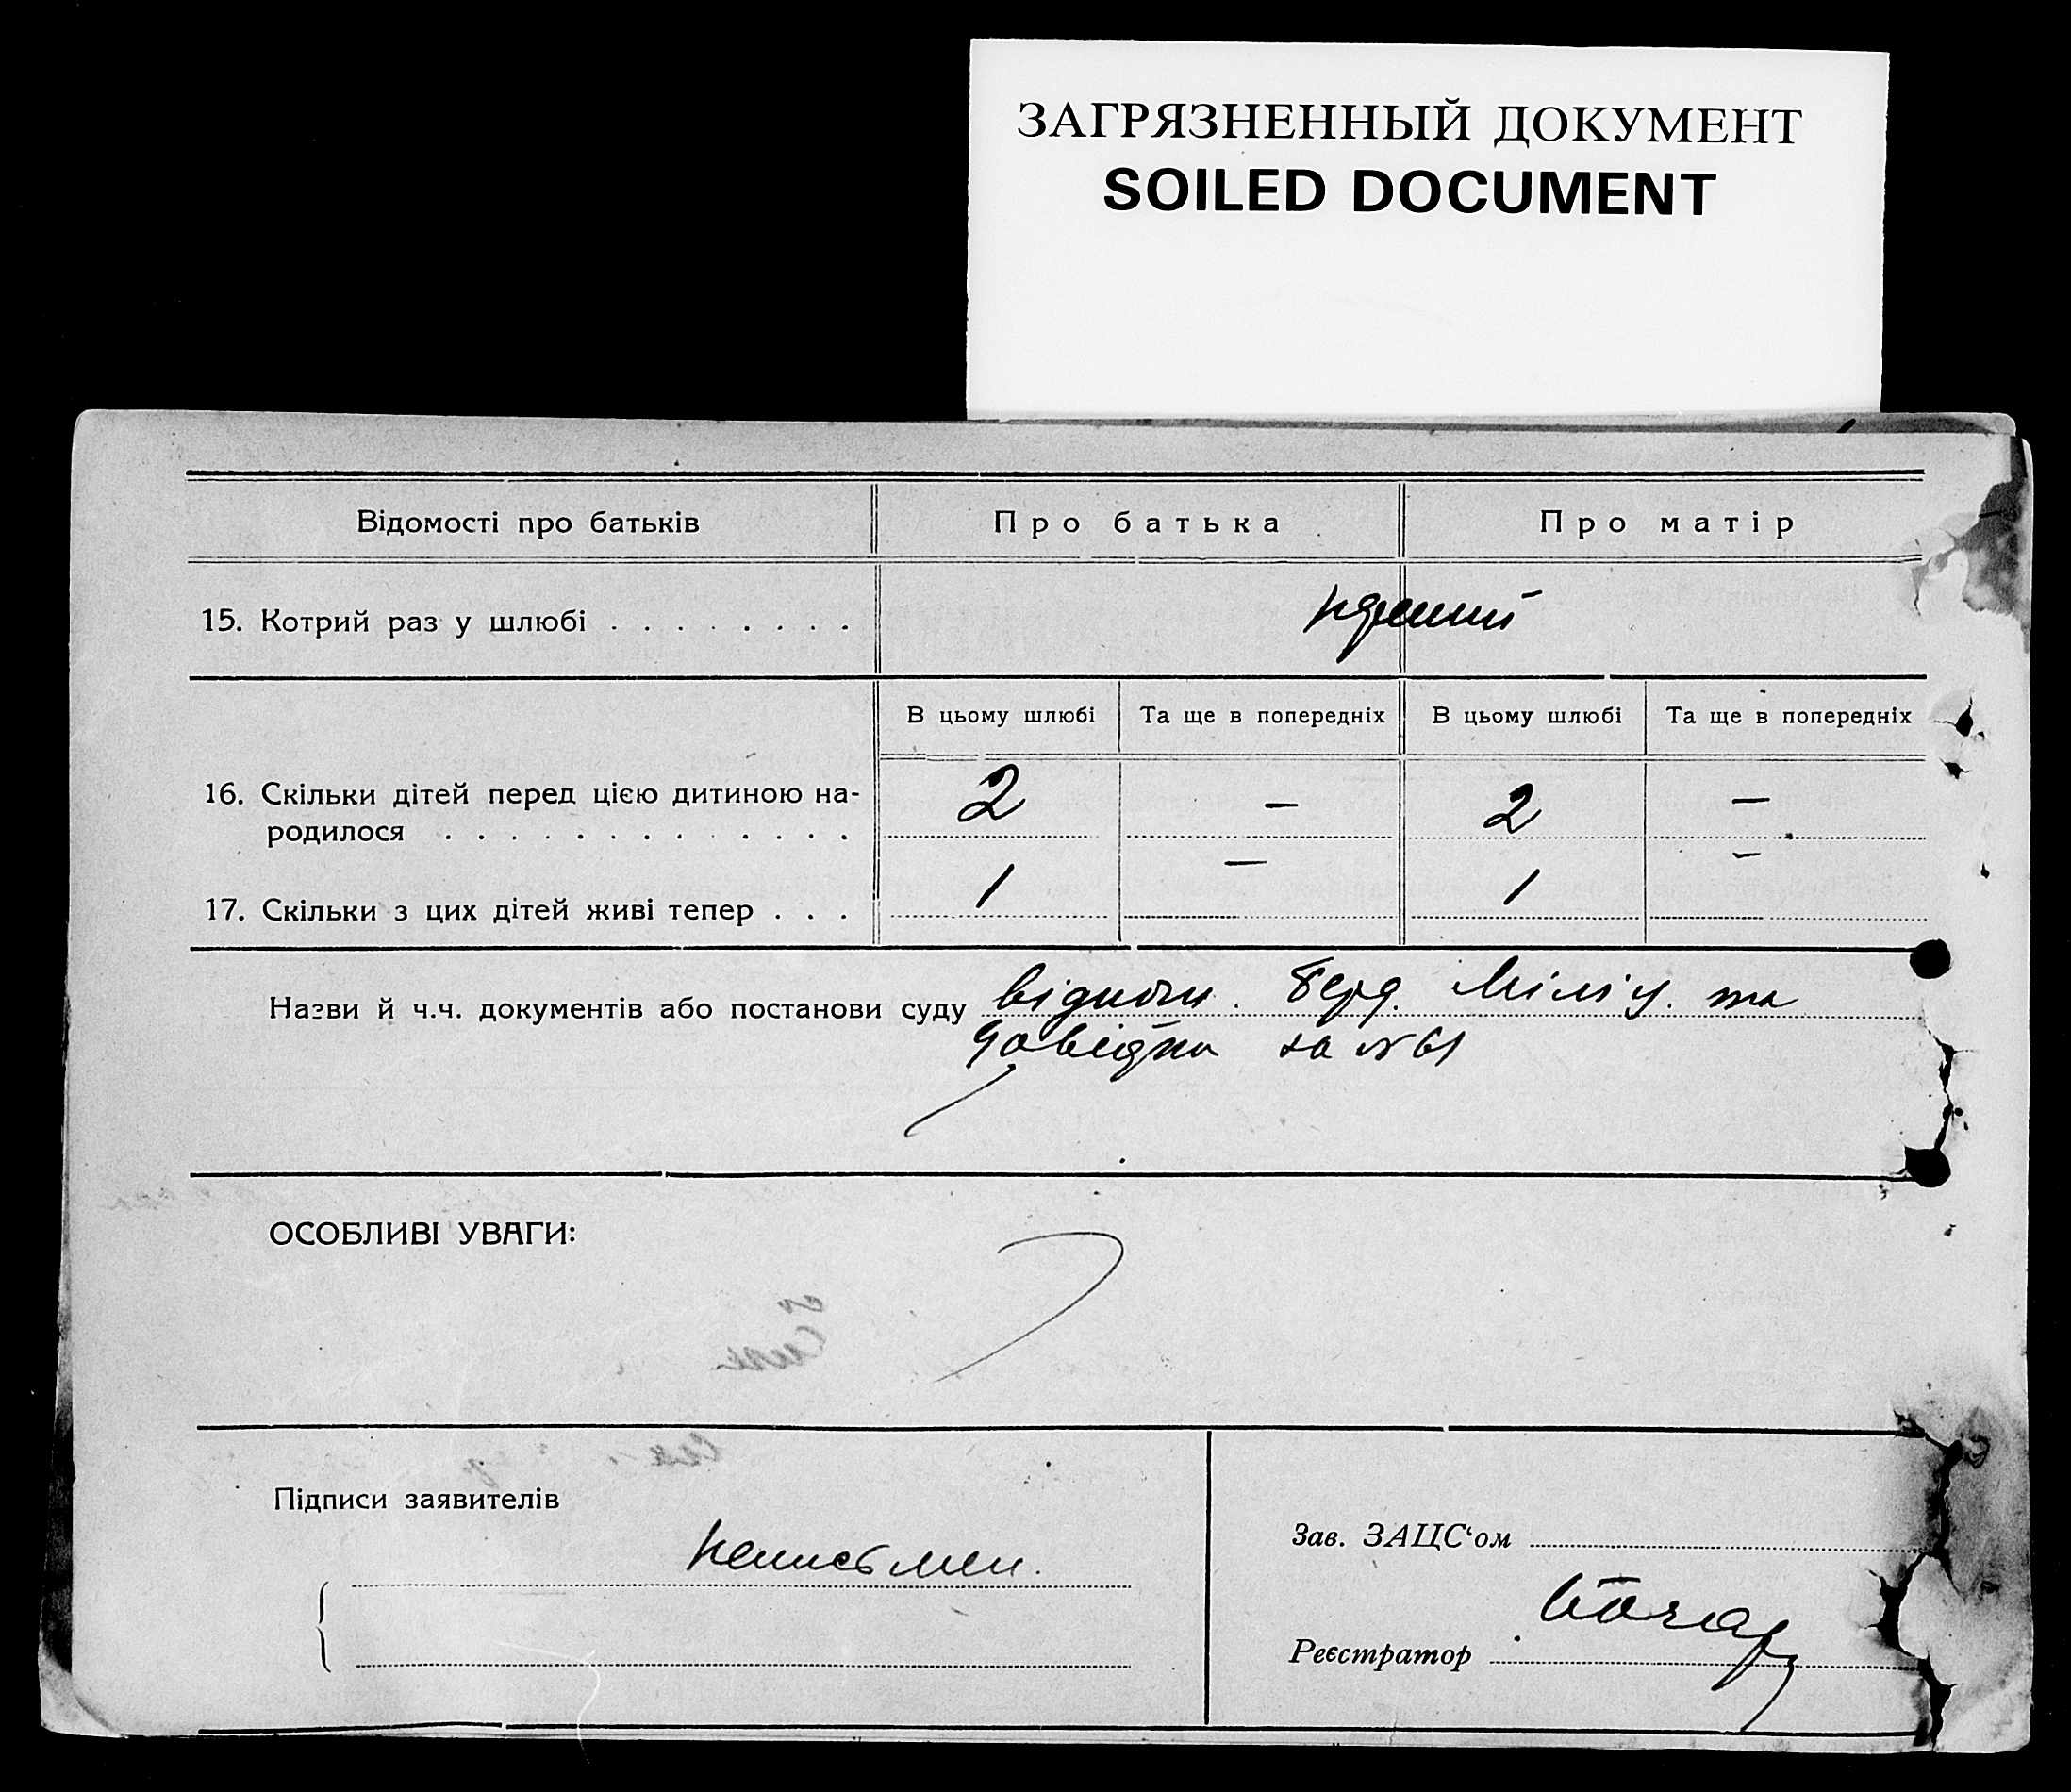 ЗАГРЯЗНЕННЫЙ ДОКУМЕНТ
SOILED DOCUMENT
Відомості про батьків Про батька Про матір
15. Котрий раз у шлюбі . . . . . . . .
В цьому шлюбі Та ще в попередніх В цьому шлюбі Та ще в попередніх
16. Скільки дітей перед цією дитиною на-
родилося . . . . . . . . . . . . . 2 — 2 —
17. Скільки з цих дітей живі тепер . . . 1 — 1 —
Назви й ч.ч. документів або постанови суду Берд. Міліц. та
довідка за №61
ОСОБЛИВІ УВАГИ:
Підписи заявителів
Зав. ЗАЦС'ом
неписьмен.
Реєстратор